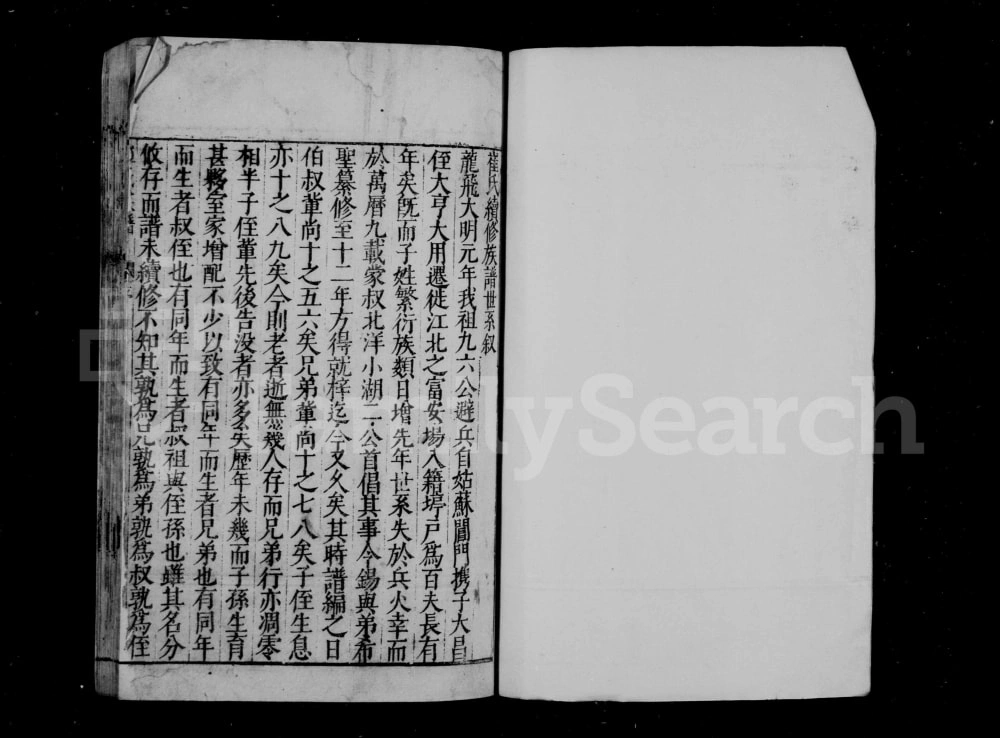 崔氏續修族譜世系叙
龍飛大明元年我祖九六公避兵自姑蘇閶門携子大昌
侄大亨大用遷徙江北之富安場入籍塲戸為百夫長有
年矣既而子姓繁衍族類日增先年世系失於兵火幸而
於萬曆九載蒙叔北洋小湖二公首倡其事令錫與弟希
聖纂修至十二年方得就梓迄今又久矣其時譜編之日
伯叔輩尚十之五六矣兄弟輩尚十之七八矣子侄生息
亦十之八九矣今則老者逝無幾人存而兄弟行亦凋零
相半子侄輩先後告没者亦多矣歷年未幾而子孫生育
甚夥室家增配不少以致有同年而生者兄弟也有同年
而生者叔侄也有同年而生者叔祖與侄孫也雖其名分
攸存而譜未續修不知其孰為兄孰為弟孰為叔孰為侄
FamilySearch